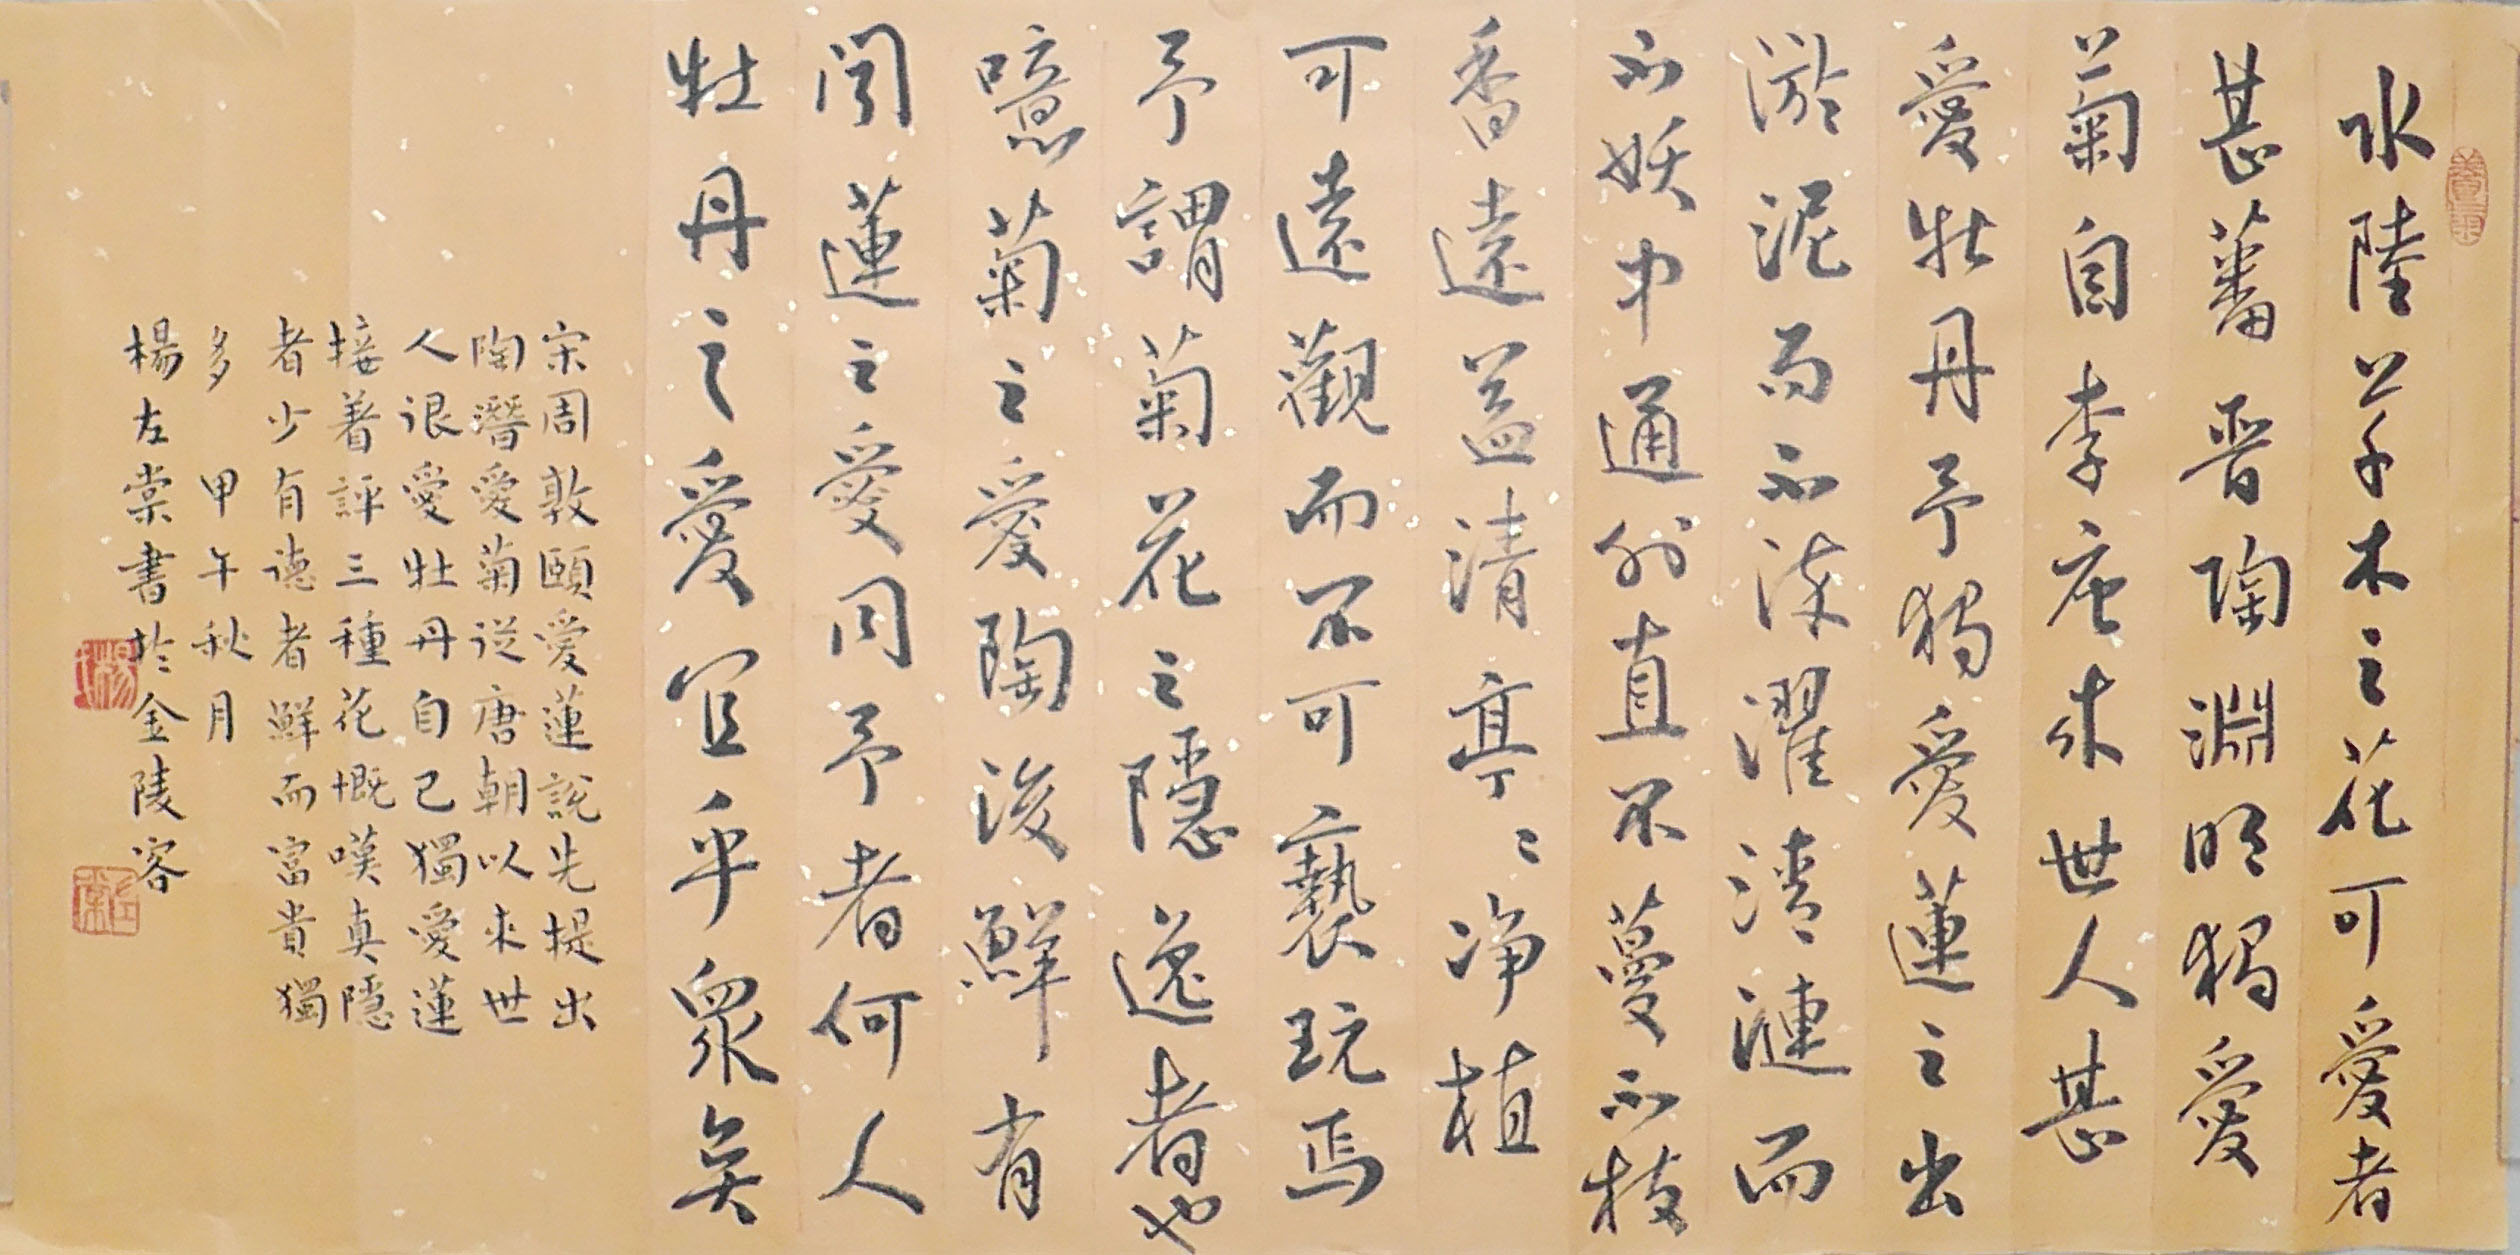 水陸草木之花可愛者
甚蕃晋陶淵明獨愛
菊自李唐来世人甚
愛牡丹予獨愛蓮之出
淤泥而不染濯清漣而
不妖中通外直不蔓不枝
香遠益清亭〻净植
可遠觀而不可褻玩焉
予謂菊花之隱逸者也
噫菊之愛陶後鮮有
聞蓮之愛同予者何人
牡丹之愛宜乎衆矣
宋周敦頤愛蓮說先提出
陶潛愛菊從唐朝以来世
人很愛牡丹自己獨愛蓮
接着評三種花慨嘆真隱
者少有德者鮮而富貴獨
多 甲午秋月
楊左棠書於金陵客